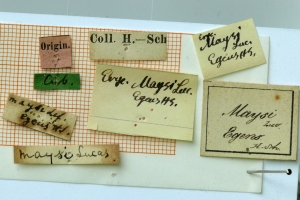 Origin.
Coll. H.—Sch
Maysi
Luc.
Egeus HS.
Cub.
Maysi
Luc.
Egeus HS.
maysi Lef.
Egeus HS
maysi Lucas.
Maysi
Luc
Egeus
H. Sch.